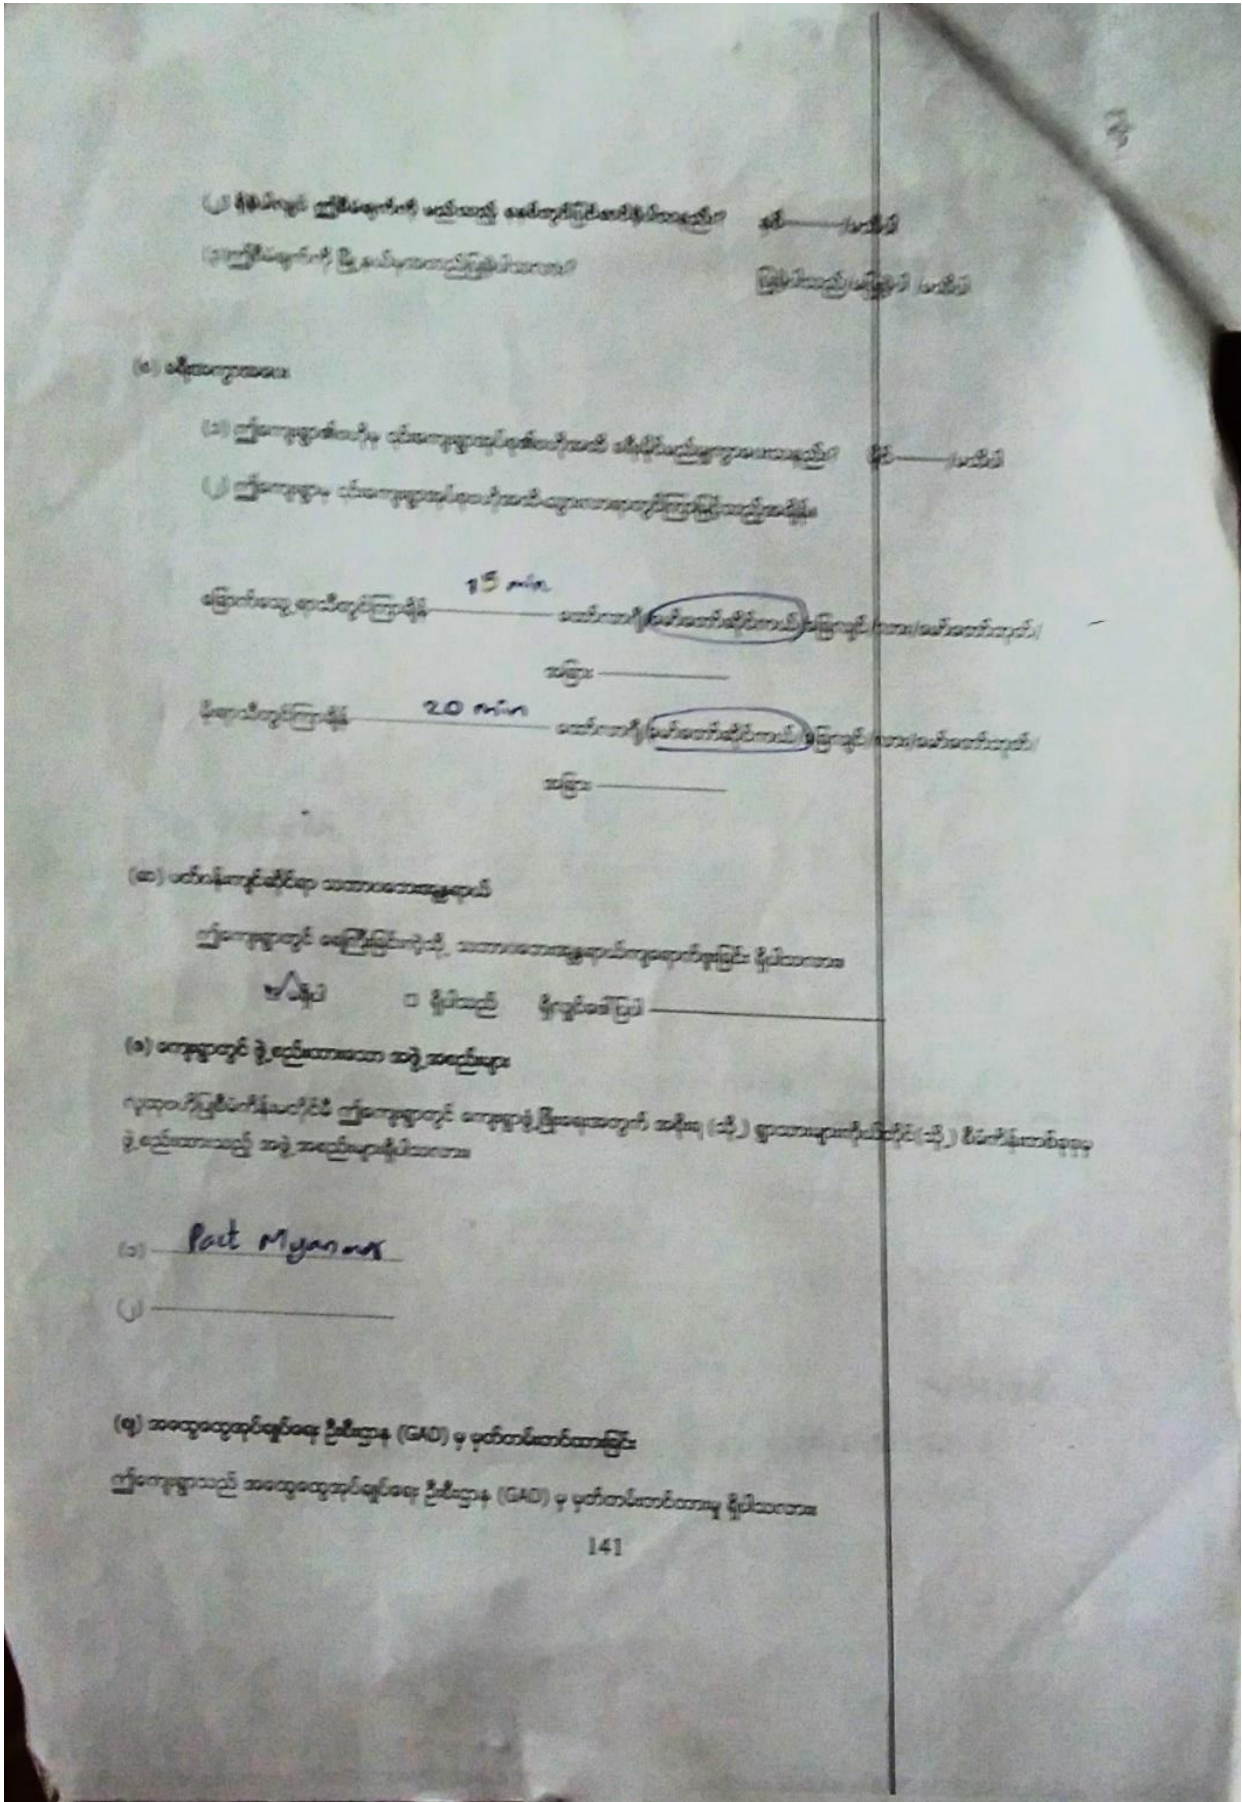 (၂) ရှိခဲ့ပါလျှင် ဤစီမံချက်ကို မည်သည့် ခုနှစ်တွင်ပြင်ဆင်ခဲ့ပါသနည်း? ခုနှစ် /မသိပါ
(၃) ဤစီမံချက်ကို မြို့နယ်မှအတည်ပြုခဲ့ပါသလား? ပြုခဲ့ပါသည်/မပြုခဲ့ပါ /မသိပါ
(စ) ခရီးအကွာအဝေး
(၁) ဤကျေးရွာ၏ဗဟိုမှ ၎င်းကျေးရွာအုပ်စု၏ဗဟိုအထိ ခရီးမိုင်မည်မျှကွာဝေးသနည်း? မိုင် /မသိပါ
(၂) ဤကျေးရွာမှ ၎င်းကျေးရွာအုပ်စုဗဟိုအထိသွားလာရာတွင်ကြာမြင့်သည့်အချိန်။
ခြောက်သွေ့ရာသီတွင်ကြာချိန် 15 min ထော်လာဂျီ/မော်တော်ဆိုင်ကယ်/ခြေလျင်/ကား/မော်တော်ဘုတ်/
အခြား
မိုးရာသီတွင်ကြာချိန် 20 min ထော်လာဂျီ/မော်တော်ဆိုင်ကယ်/ခြေလျင်/ကား/မော်တော်ဘုတ်/
အခြား
(ဆ) ပတ်ဝန်းကျင်ဆိုင်ရာ သဘာဝဘေးအန္တရာယ်
ဤကျေးရွာတွင် ရေကြီးခြင်းကဲ့သို့ သဘာဝဘေးအန္တရာယ်ကျရောက်ဖူးခြင်း ရှိပါသလား။
မရှိပါ □ ရှိပါသည် ရှိလျှင်ဖော်ပြပါ
(ဇ) ကျေးရွာတွင် ဖွဲ့စည်းထားသော အဖွဲ့အစည်းများ
လူထုဗဟိုပြုစီမံကိန်းမတိုင်မီ ဤကျေးရွာတွင် ကျေးရွာဖွံ့ဖြိုးရေးအတွက် အစိုးရ (သို့) ရွာသားများကိုယ်တိုင်(သို့) စီမံကိန်းတစ်ခုခုမှ
ဖွဲ့စည်းထားသည့် အဖွဲ့အစည်းများရှိပါသလား။
(၁) Pact Myanmar
(၂)
(ဈ) အထွေထွေအုပ်ချုပ်ရေး ဦးစီးဌာန (GAD) မှ မှတ်တမ်းတင်ထားခြင်း
ဤကျေးရွာသည် အထွေထွေအုပ်ချုပ်ရေး ဦးစီးဌာန (GAD) မှ မှတ်တမ်းတင်ထားမှု ရှိပါသလား။
141